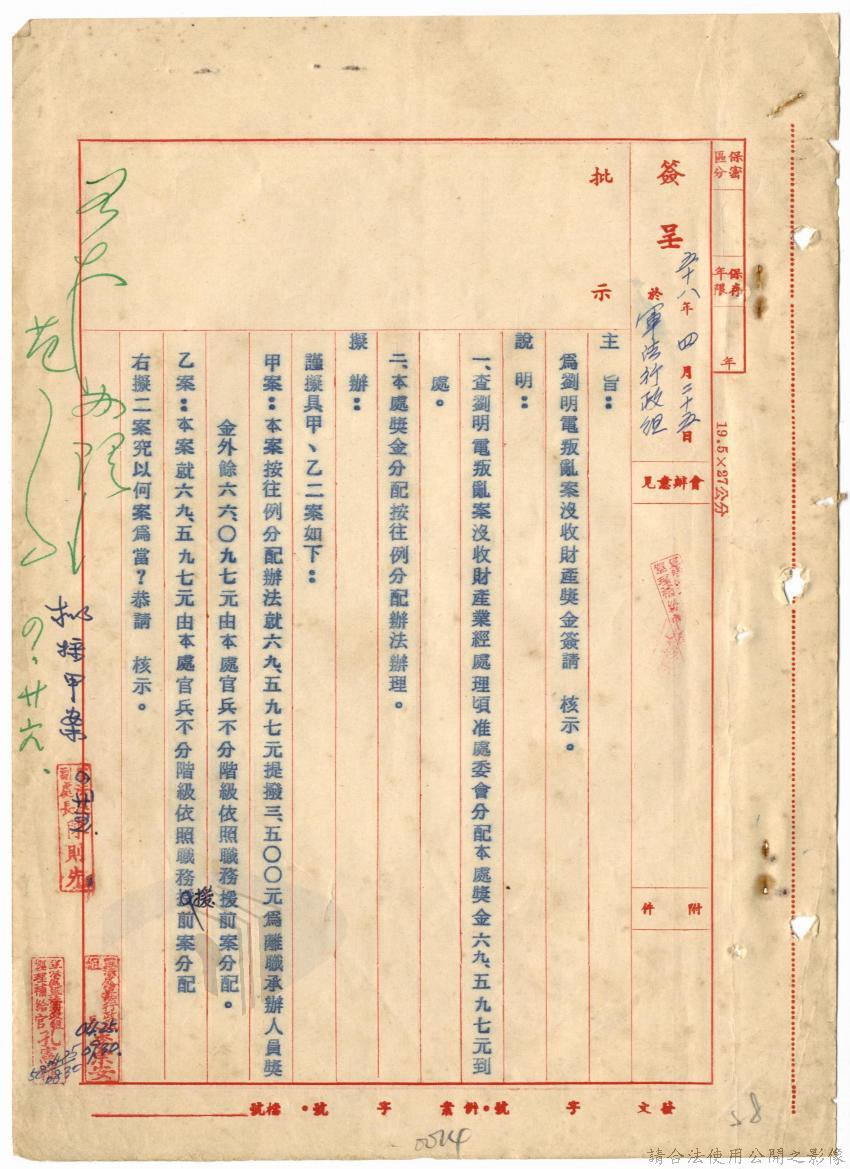 保密區分
保存年限
年
19.5×27公分
簽呈
五十八年四月二十五日
於軍法行政組
會辦意見
附件
批示
主旨：
為劉明電叛亂案沒收財產獎金簽請　核示。
說明：
一、查劉明電叛亂案沒收財產業經處理頃准處委會分配本處獎金六九、五九七元到
處。
二、本處獎金分配按往例分配辦法辦理。
擬辦：
謹擬具甲、乙二案如下：
甲案：本案按往例分配辦法就六九、五九七元提撥三、五〇〇元為離職承辦人員獎
金外餘六六、〇九七元由本處官兵不分階級依照職務援前案分配。
乙案：本案就六九、五九七元由本處官兵不分階級依照職務援前案分配
右擬二案究以何案為當？恭請　核示。
擬採甲案
副處長
則先
四、廿六、
04.25.
發文　字　號・附案　字　號・檔號
0014
58
請合法使用公開之影像